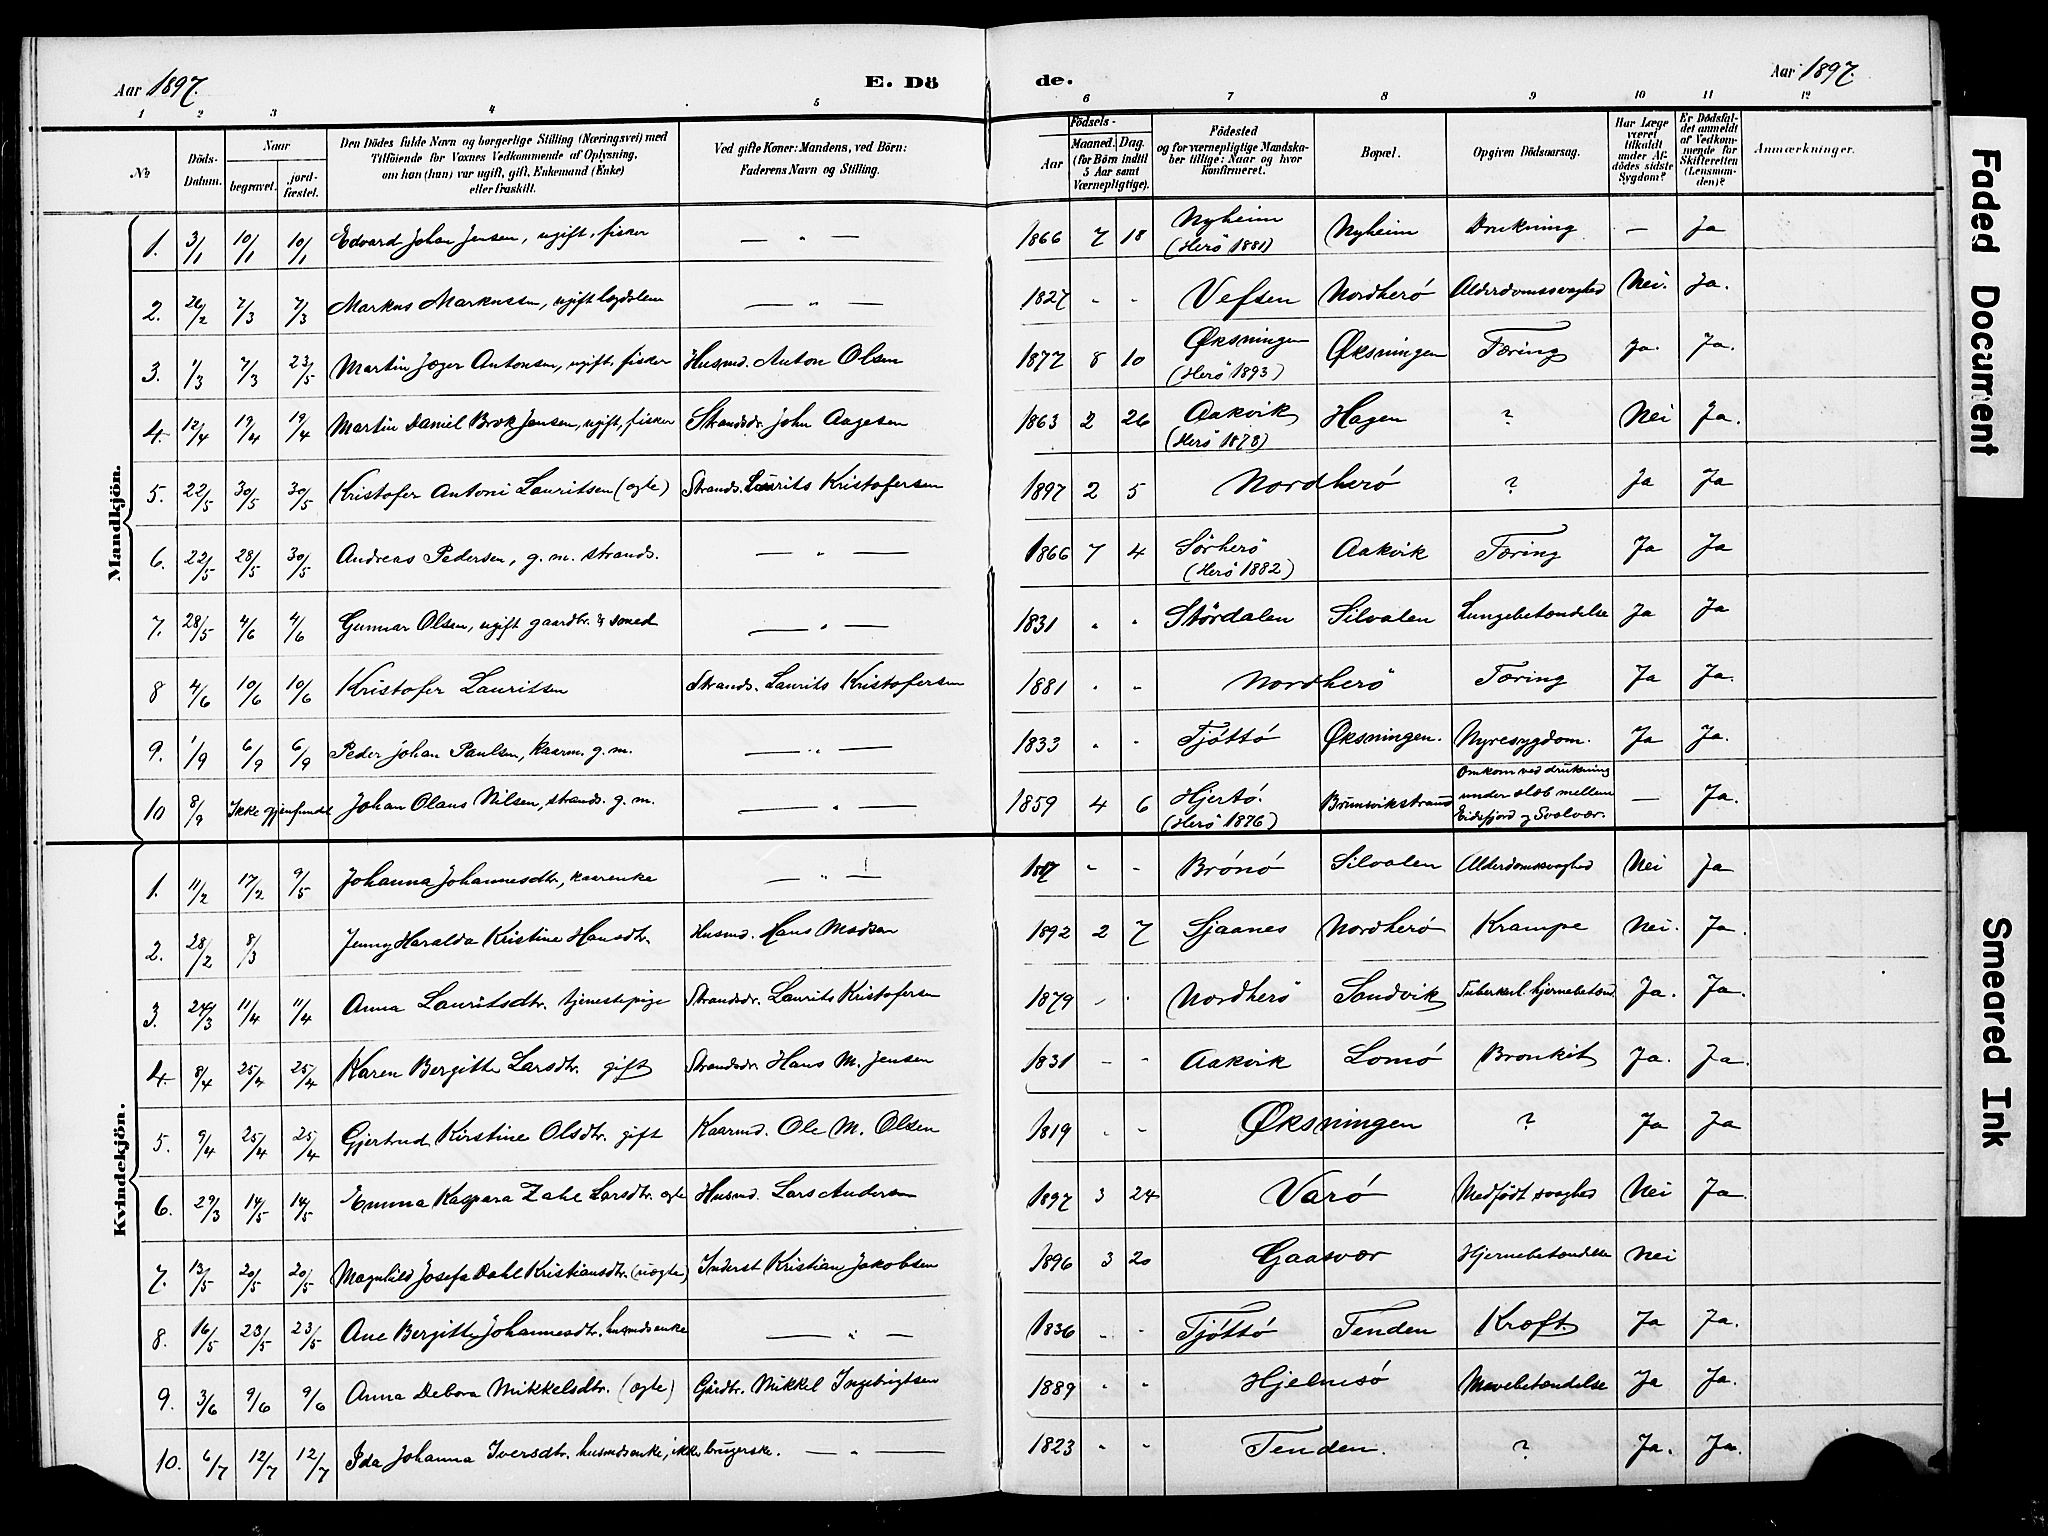 Aar 1897.
E. Dö
de.
Aar 1897.
1 2 3 4 5 6 7 8 9 10 11 12
No
Döds-Datum.
Naar
begravet. jord-fæstet.
Den Dödes fulde Navn og borgerlige Stilling (Næringsvei) med
Tilföiende for Voxnes Vedkommende af Oplysning,
om han (hun) var ugift, gift, Enkemand (Enke)
eller fraskilt.
Ved gifte Koner: Mandens, ved Börn:
Faderens Navn og Stilling.
Födsels-
Aar
Maaned. Dag.
(for Börn indtil
5 Aar samt
Værnepligtige).
Födested
og for værnepligtige Mandska-
ber tillige: Naar og hvor
konfirmeret.
Bopæl.
Opgiven Dödsaarsag.
Har Læge
været
tilkaldt
under Af-
dödes sidste
Sygdom?
Er Dödsfal-
det anmeldt
af Vedkom-
mende for
Skifteretten
(Lensman-
den)?
Anmærkninger.
Mandkjön.
1. 3/1 10/1 10/1 Edvard Johan Jensen, ugift, fisker — " — 1866 7 18 Nyheim (Herö 1881) Nyheim Drukning — Ja
2. 26/2 7/3 7/3 Markus Markussen, ugift lægdslem — " — 1827 " " Vefsen Nordherö Alderdomssvaghed Nei. Ja.
3. 1/3 7/3 23/5 Martin Jæger Antonsen, ugift, fisker Husmd. Anton Olsen 1877 8 10 Øksningen (Herö 1893) Øksningen Tæring Ja. Ja.
4. 12/4 19/4 19/4 Martin Daniel Brok Jensen, ugift, fisker Strandsdr. John Aagesen 1863 2 26 Aakvik (Herö 1878) Hagen ? Nei Ja.
5. 22/5 30/5 30/5 Kristofer Antoni Lauritsen (ægte) Strands. Laurits Kristofersen 1897 2 5 Nordherö ? Ja Ja
6. 22/5 28/5 30/5 Andreas Pedersen, g. m. strands. — " — 1866 7 4 Sörherö (Herö 1882) Aakvik Tæring Ja Ja
7. 28/5 4/6 4/6 Gunnar Olsen, ugift gaardbr. & smed — " — 1831 " " Stördalen Silvalen Lungebetændelse Ja Ja
8 4/6 10/6 10/6 Kristofer Lauritsen Strands. Laurits Kristofersen 1881 " " Nordherö Tæring Ja Ja.
9. 1/9 6/9 6/9 Peder Johan Paulsen, kaarm. g. m. — " — 1833 " " Tjöttö Øksningen. Nyresygdom. Ja Ja.
10 8/9 Ikke gjenfundet Johan Olaus Nilsen, strands. g. m. — " — 1859 4 6 Hjertö. (Herö 1876) Brunsvikstrand Omkom ved drukning under slæb mellem Eidsfjord og Svolvær. — Ja.
Kvindekjön.
1. 11/2 17/2 9/5 Johanna Johannesdtr, kaarenke — " — " " Brönö Silvalen Alderdomssvaghed Nei Ja
2. 28/2 8/3 Jenny Haralda Kristine Hansdtr. Husmd. Hans Madsen 1892 2 7 Sjaanes Nordherö Krampe Nei. Ja.
3. 24/3 11/4 11/4 Anna Lauritsdtr. tjenestepige Strandsdr. Laurits Kristofersen 1879 " " Nordherö Sandvik Tuberkul. hjernebetænd. Ja. Ja.
4. 8/4 25/4 25/4 Karen Bergitte Larsdtr. gift Strandsdr. Hans M. Jensen 1831 " " Aakvik Lomö Bronkit Ja. Ja.
5. 9/4 25/4 25/4 Gjertrud Kirstine Olsdtr. gift Kaarmd. Ole M. Olsen 1819 " " Øksningen ? Ja Ja
6. 29/3 14/5 14/5 Emma Kaspara Zahl Larsdtr. ægte Husmd. Lars Andersen 1897 3 24 Varö Medfödt svaghed Nei Ja
7. 13/5 20/5 20/5 Magnhild Josefa Dahl Kristiansdtr. (uægte) Inderst Kristian Jakobsen 1896 3 20 Gaasvær Hjernebetændelse Nei
8. 16/5 23/5 23/5 Ane Bergitte Johannesdtr. husmdsenke — " — 1836 " " Tjöttö Tenden Kræft. Ja Ja.
9. 3/6 9/6 9/6 Anna Debora Mikkelsdtr. (ægte) Gårdbr. Mikkel Ingebrigtsen 1889 " " Hjelmsö Mavebetændelse Ja Ja.
10. 6/7 12/7 12/7 Ida Johanna Iversdtr. husmdsenke, ikke brugerske. — " — 1823 " " Tenden. ? Ja. Ja.
Faded Document
Smeared Ink